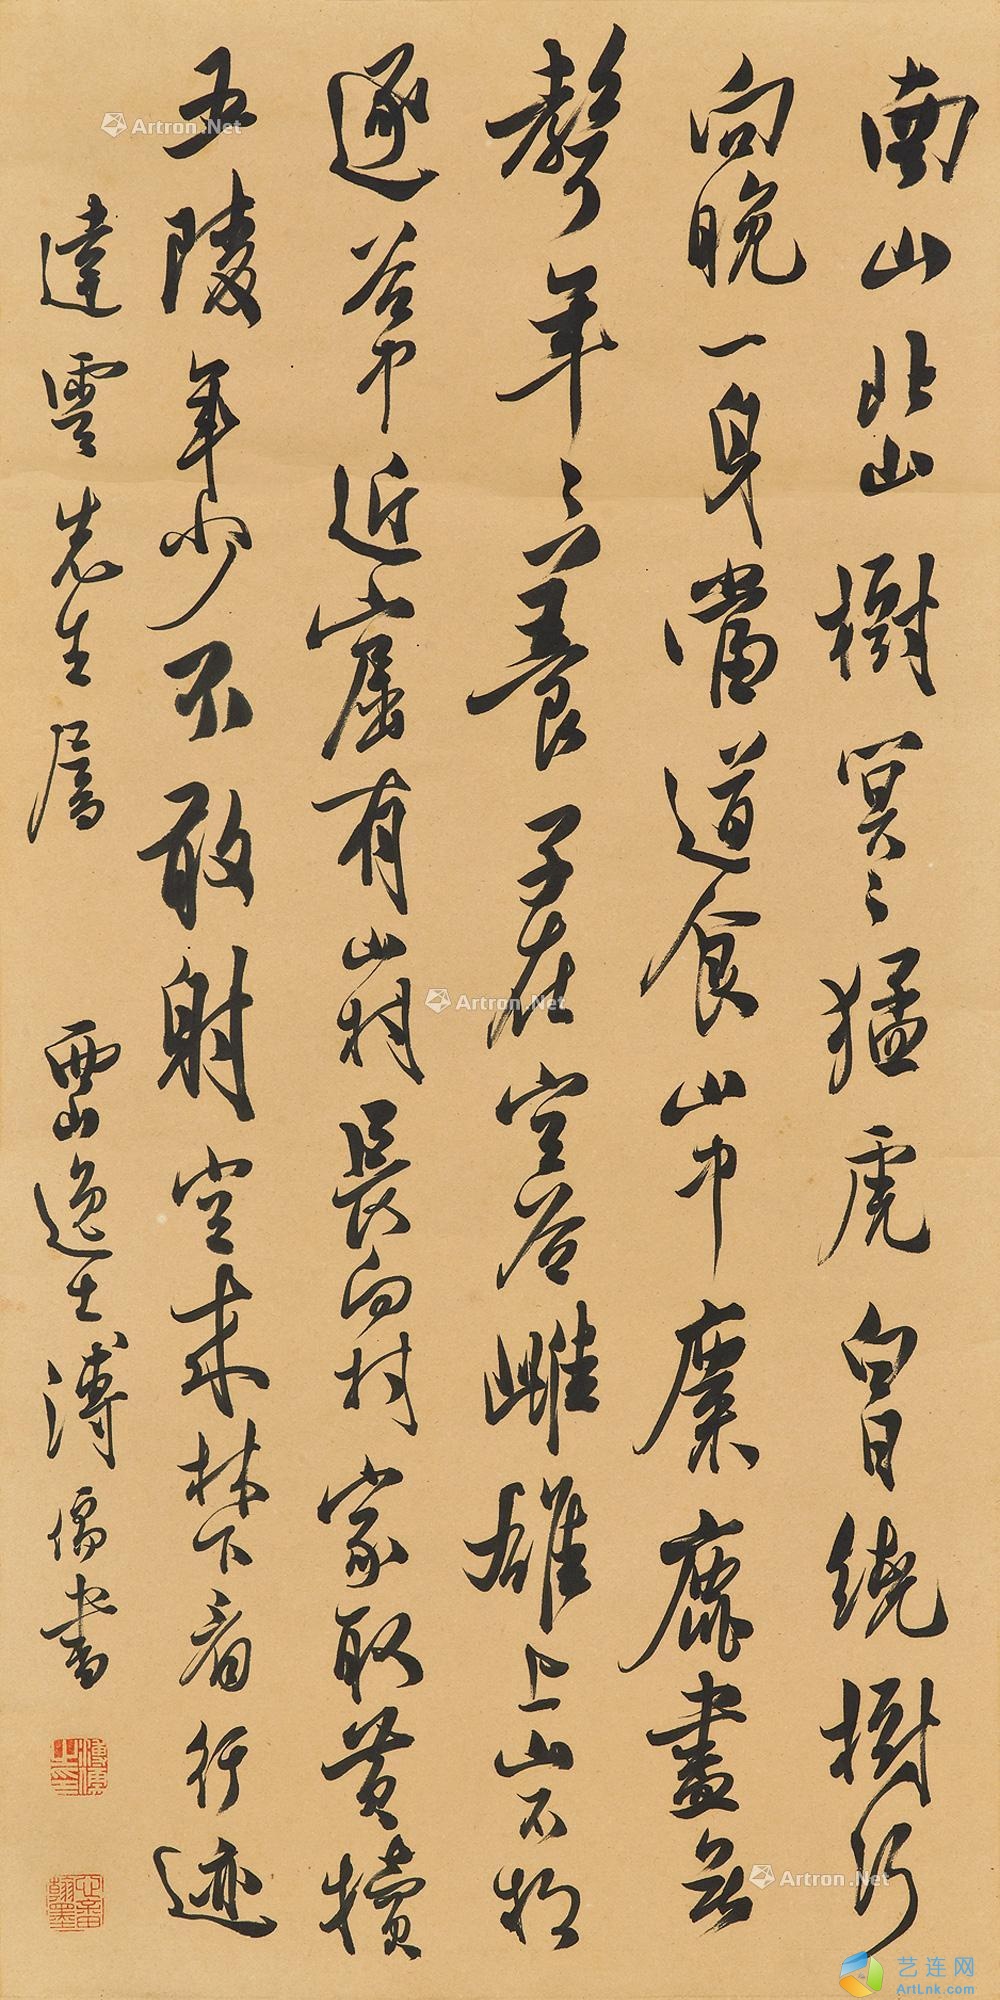 南山北山樹冥〻猛虎白日繞樹行
向晚一身當道食山中麋鹿盡無
聲年〻養子在空谷雌雄上山不相
逐谷中近窟有山村長向村家取黃犢
五陵年少不敢射空來林下看行迹
達雲先生属
西山逸士溥儒書
Artron.Net
Artron.Net
Artron.Net
艺连网
ArtLnk.com